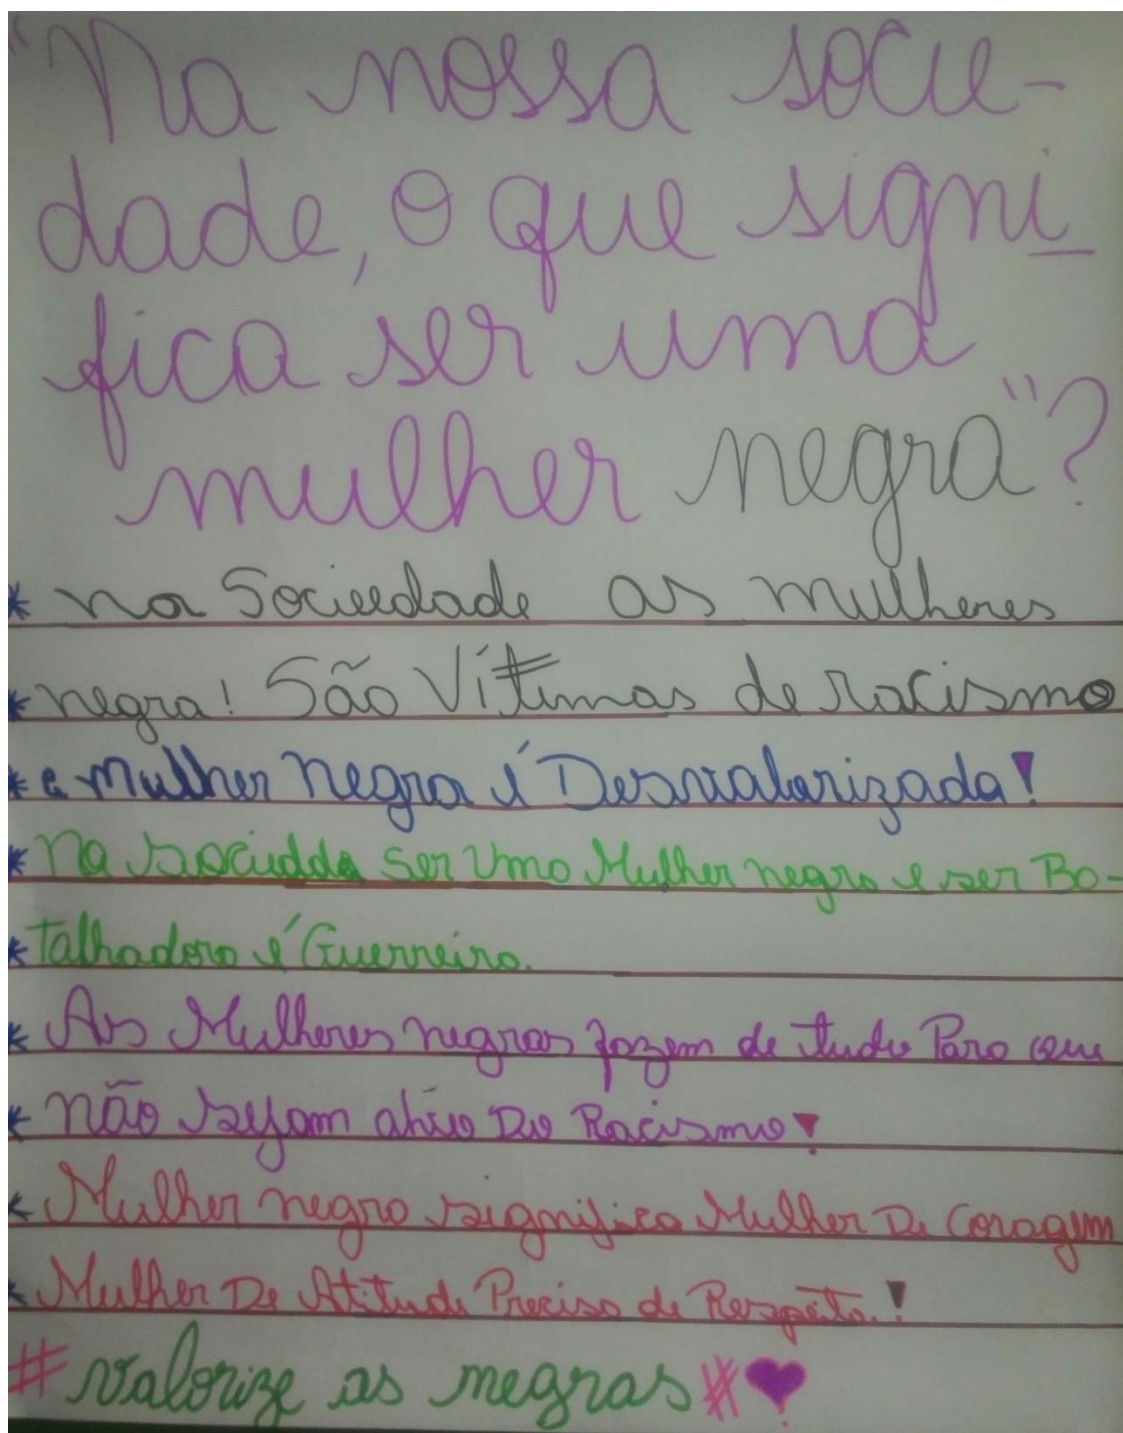 "Na nossa socie-
dade, o que signi
fica ser uma
mulher negra"?
* na Sociedade as mulheres
* negra! São Vítimas de racismo
* a mulher negra é Desvalorizada!
* Na sociedda ser uma Mulher negra e ser Ba-
* Talhadora é Guerreira.
* As Mulheres negras fazem de tudo Para que
* não sejam alvo Do Racismo!
* Mulher negra significa Mulher De Coragem
* Mulher De Atitude Precisa de Respeito.!
# valorize as negras # ♥